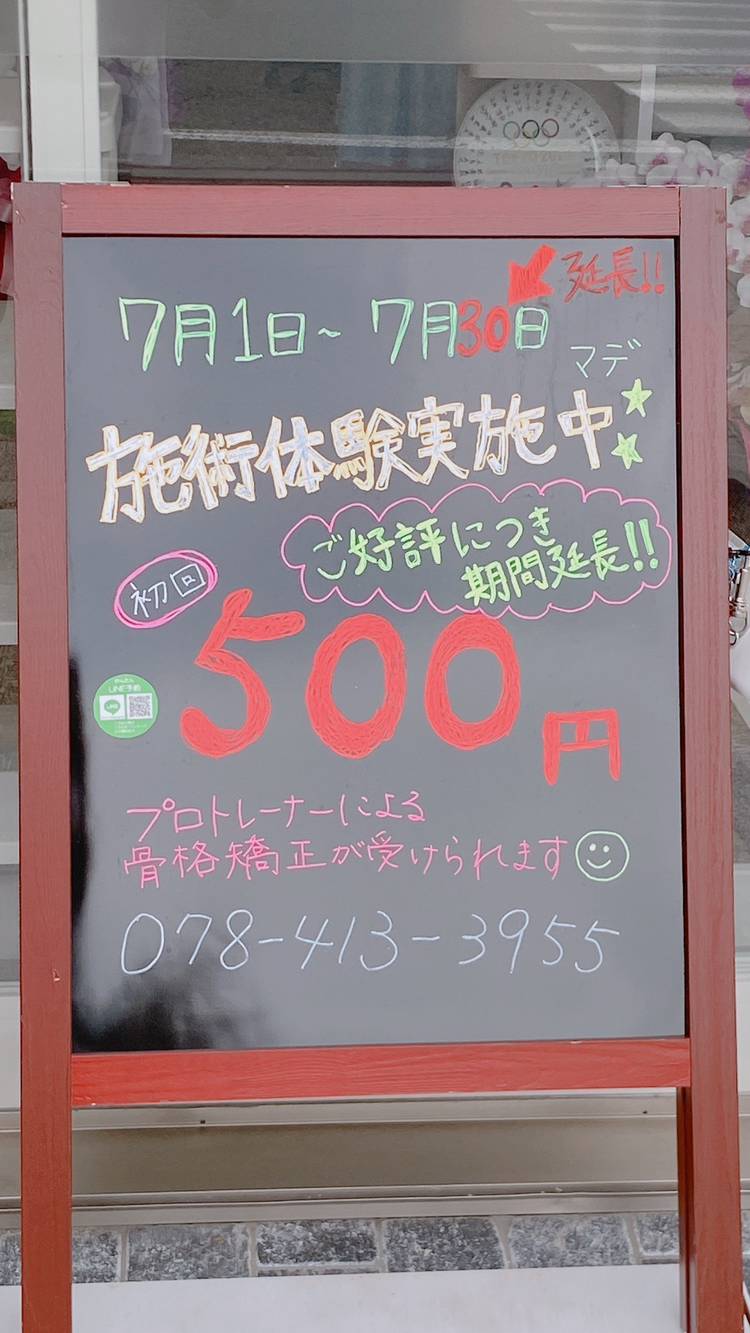 延長!!
7月1日~7月30日
マデ
施術体験実施中
ご好評につき
期間延長!!
初回
500円
かんたん
LINE予約
LINE
プロトレーナーによる
骨格矯正が受けられます
078-413-3955